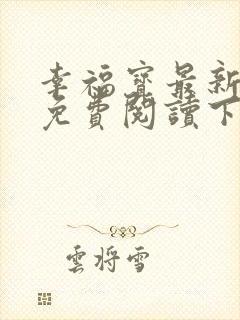 幸福寶最新
免費閱讀下
雲將雪